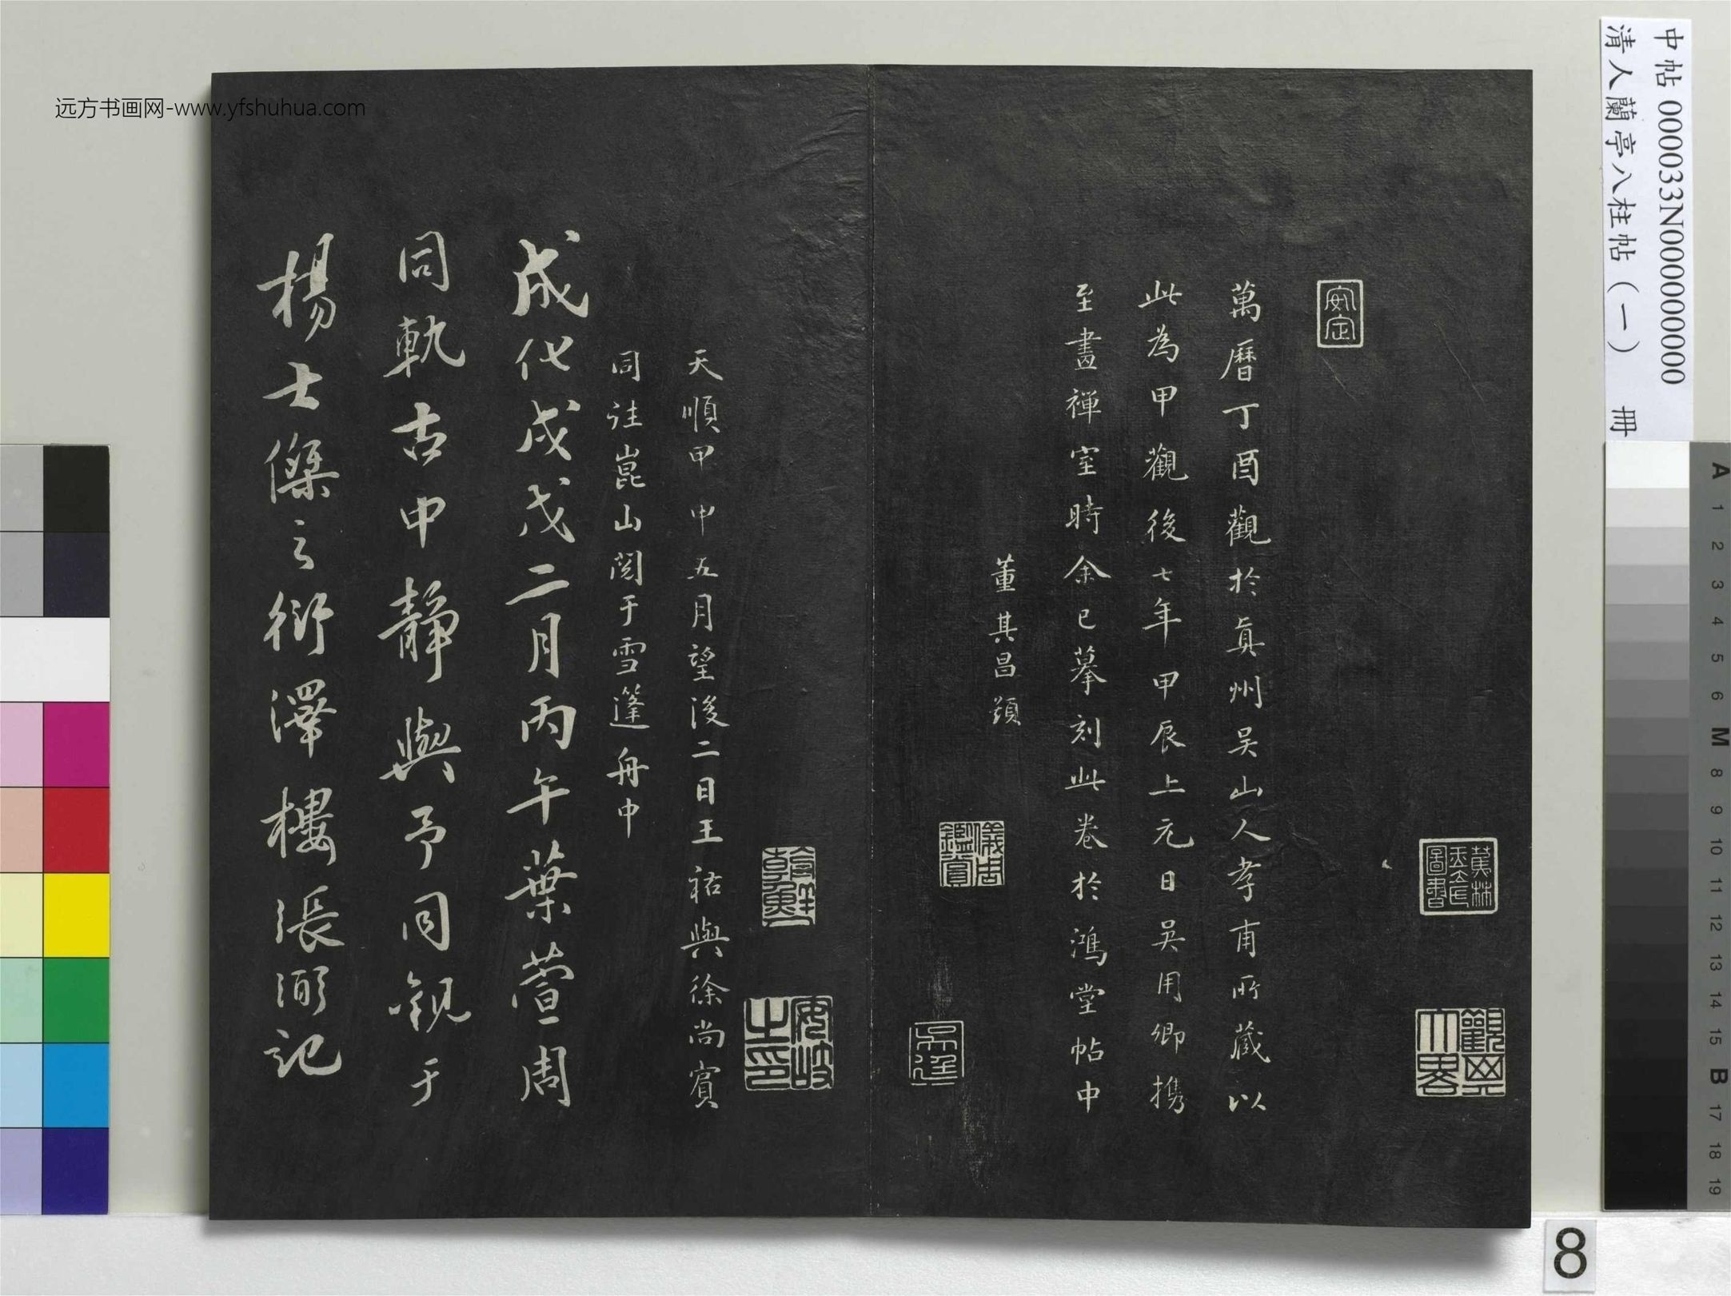 中帖 000033N000000000
清人蘭亭八柱帖（一） 冊
远方书画网-www.yfshuhua.com
安定
蕉林玉立氏圖書
觀其大略
萬曆丁酉觀於真州吳山人孝甫所藏以
此為甲觀後七年甲辰上元日吳用卿攜
至畫禪室時余已摹刻此卷於鴻堂帖中
董其昌題
儀周鑑賞
吳廷
朝鮮
安岐之印
天順甲申五月望後二日王祐與徐尚賓
同往崑山閱于雪篷舟中
成化戊戌二月丙午葉萱周
同軌古中靜與予同觀于
楊士傑之衍澤樓張弼記
A 1 2 3 4 5 6 M 8 9 10 11 12 13 14 15 B 17 18 19
8